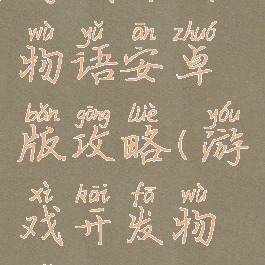 wù yǔ ān zhuó
物语安卓
bǎn gōng lüè yóu
版攻略(游
xì kāi fā wù
戏开发物